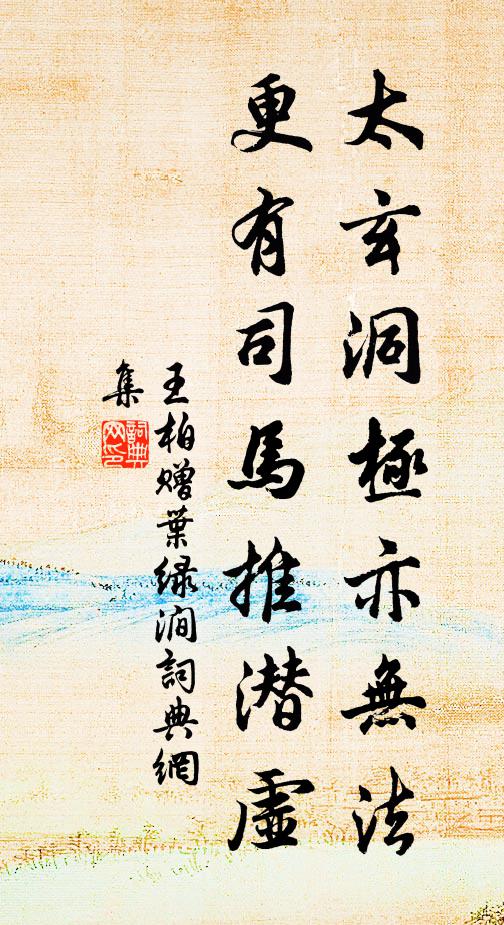 太玄洞極亦無法
更有司馬推潛虛
王柏贈葉緑澗詞典網
集
詞典網印